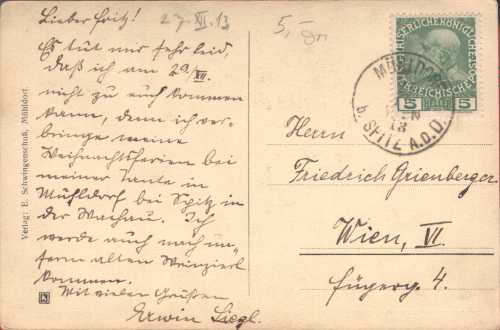 Lieber Fritz!
27. XII. 13
5,-
Es tut mir sehr leid,
daß ich am 29/XII.
nicht zu euch kommen
kann, denn ich ver-
bringe meine
Weihnachtsferien bei
meiner Tante in
Mühldorf bei Spitz in
der Wachau. Ich
werde auch nach un-
serm alten Weinzierl
kommen.
Mit vielen Grüßen
Erwin Siegl.
Verlag: E. Schwingenschuß, Mühldorf.
KAISERLICHE KÖNIGLICHE
ÖSTERREICHISCHE POST
5 5
MÜHLDORF
b. SPITZ A.D.D.
Herrn
Friedrich Grienberger
Wien, VI.
Fügerg. 4.